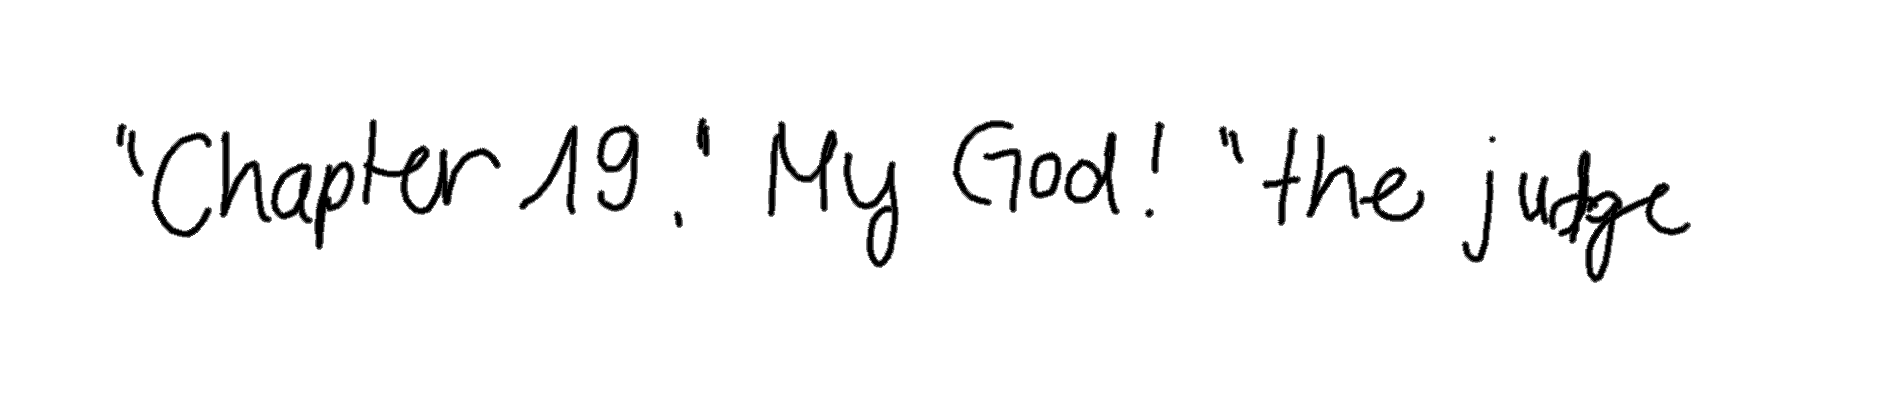 "Chapter 19." My God! "the judge